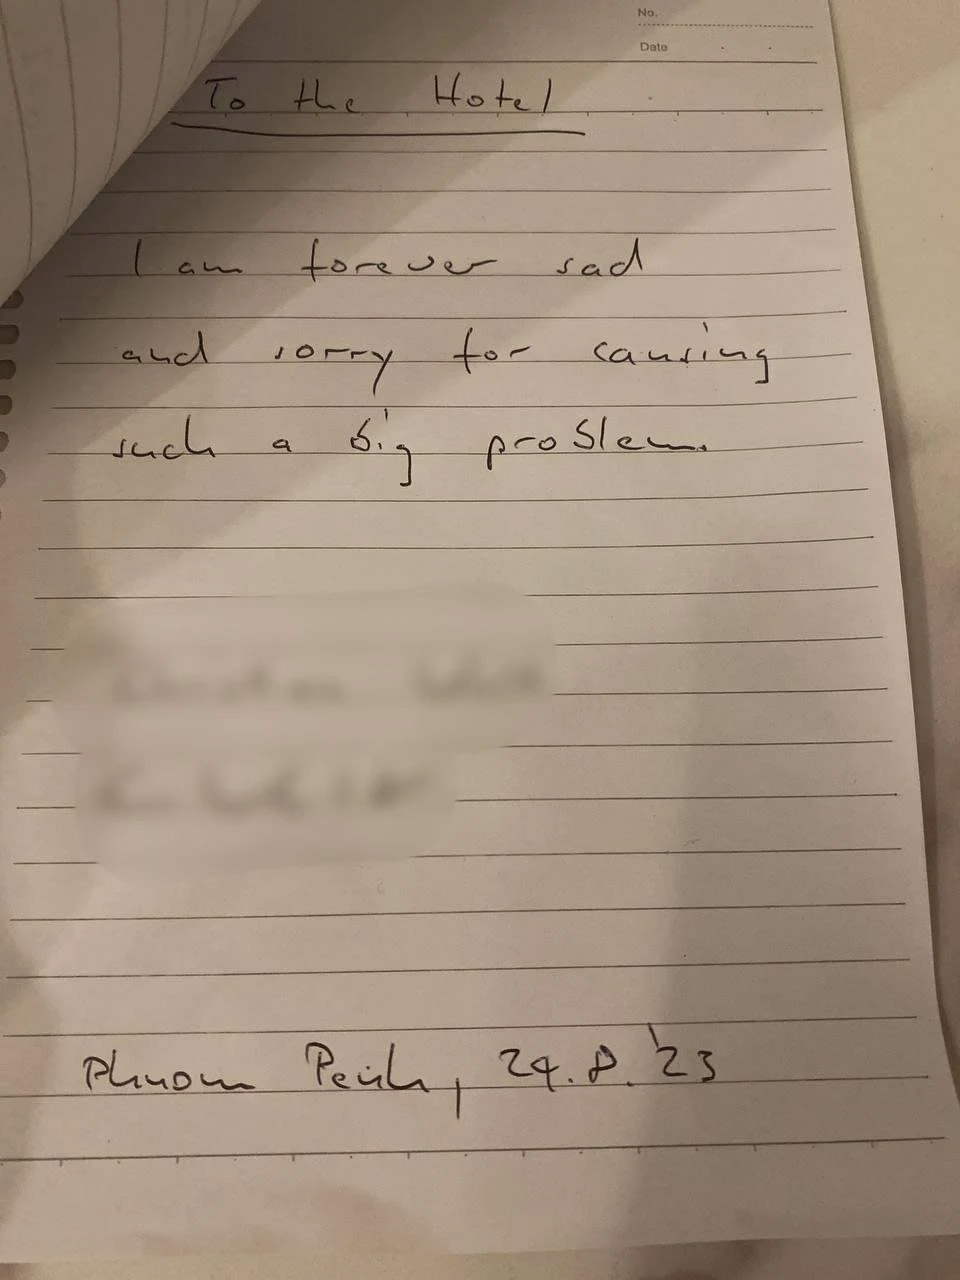 No.
Date
To the Hotel
I am forever sad
and sorry for causing
such a big problem.
Phnom Penh, 24.8.'23